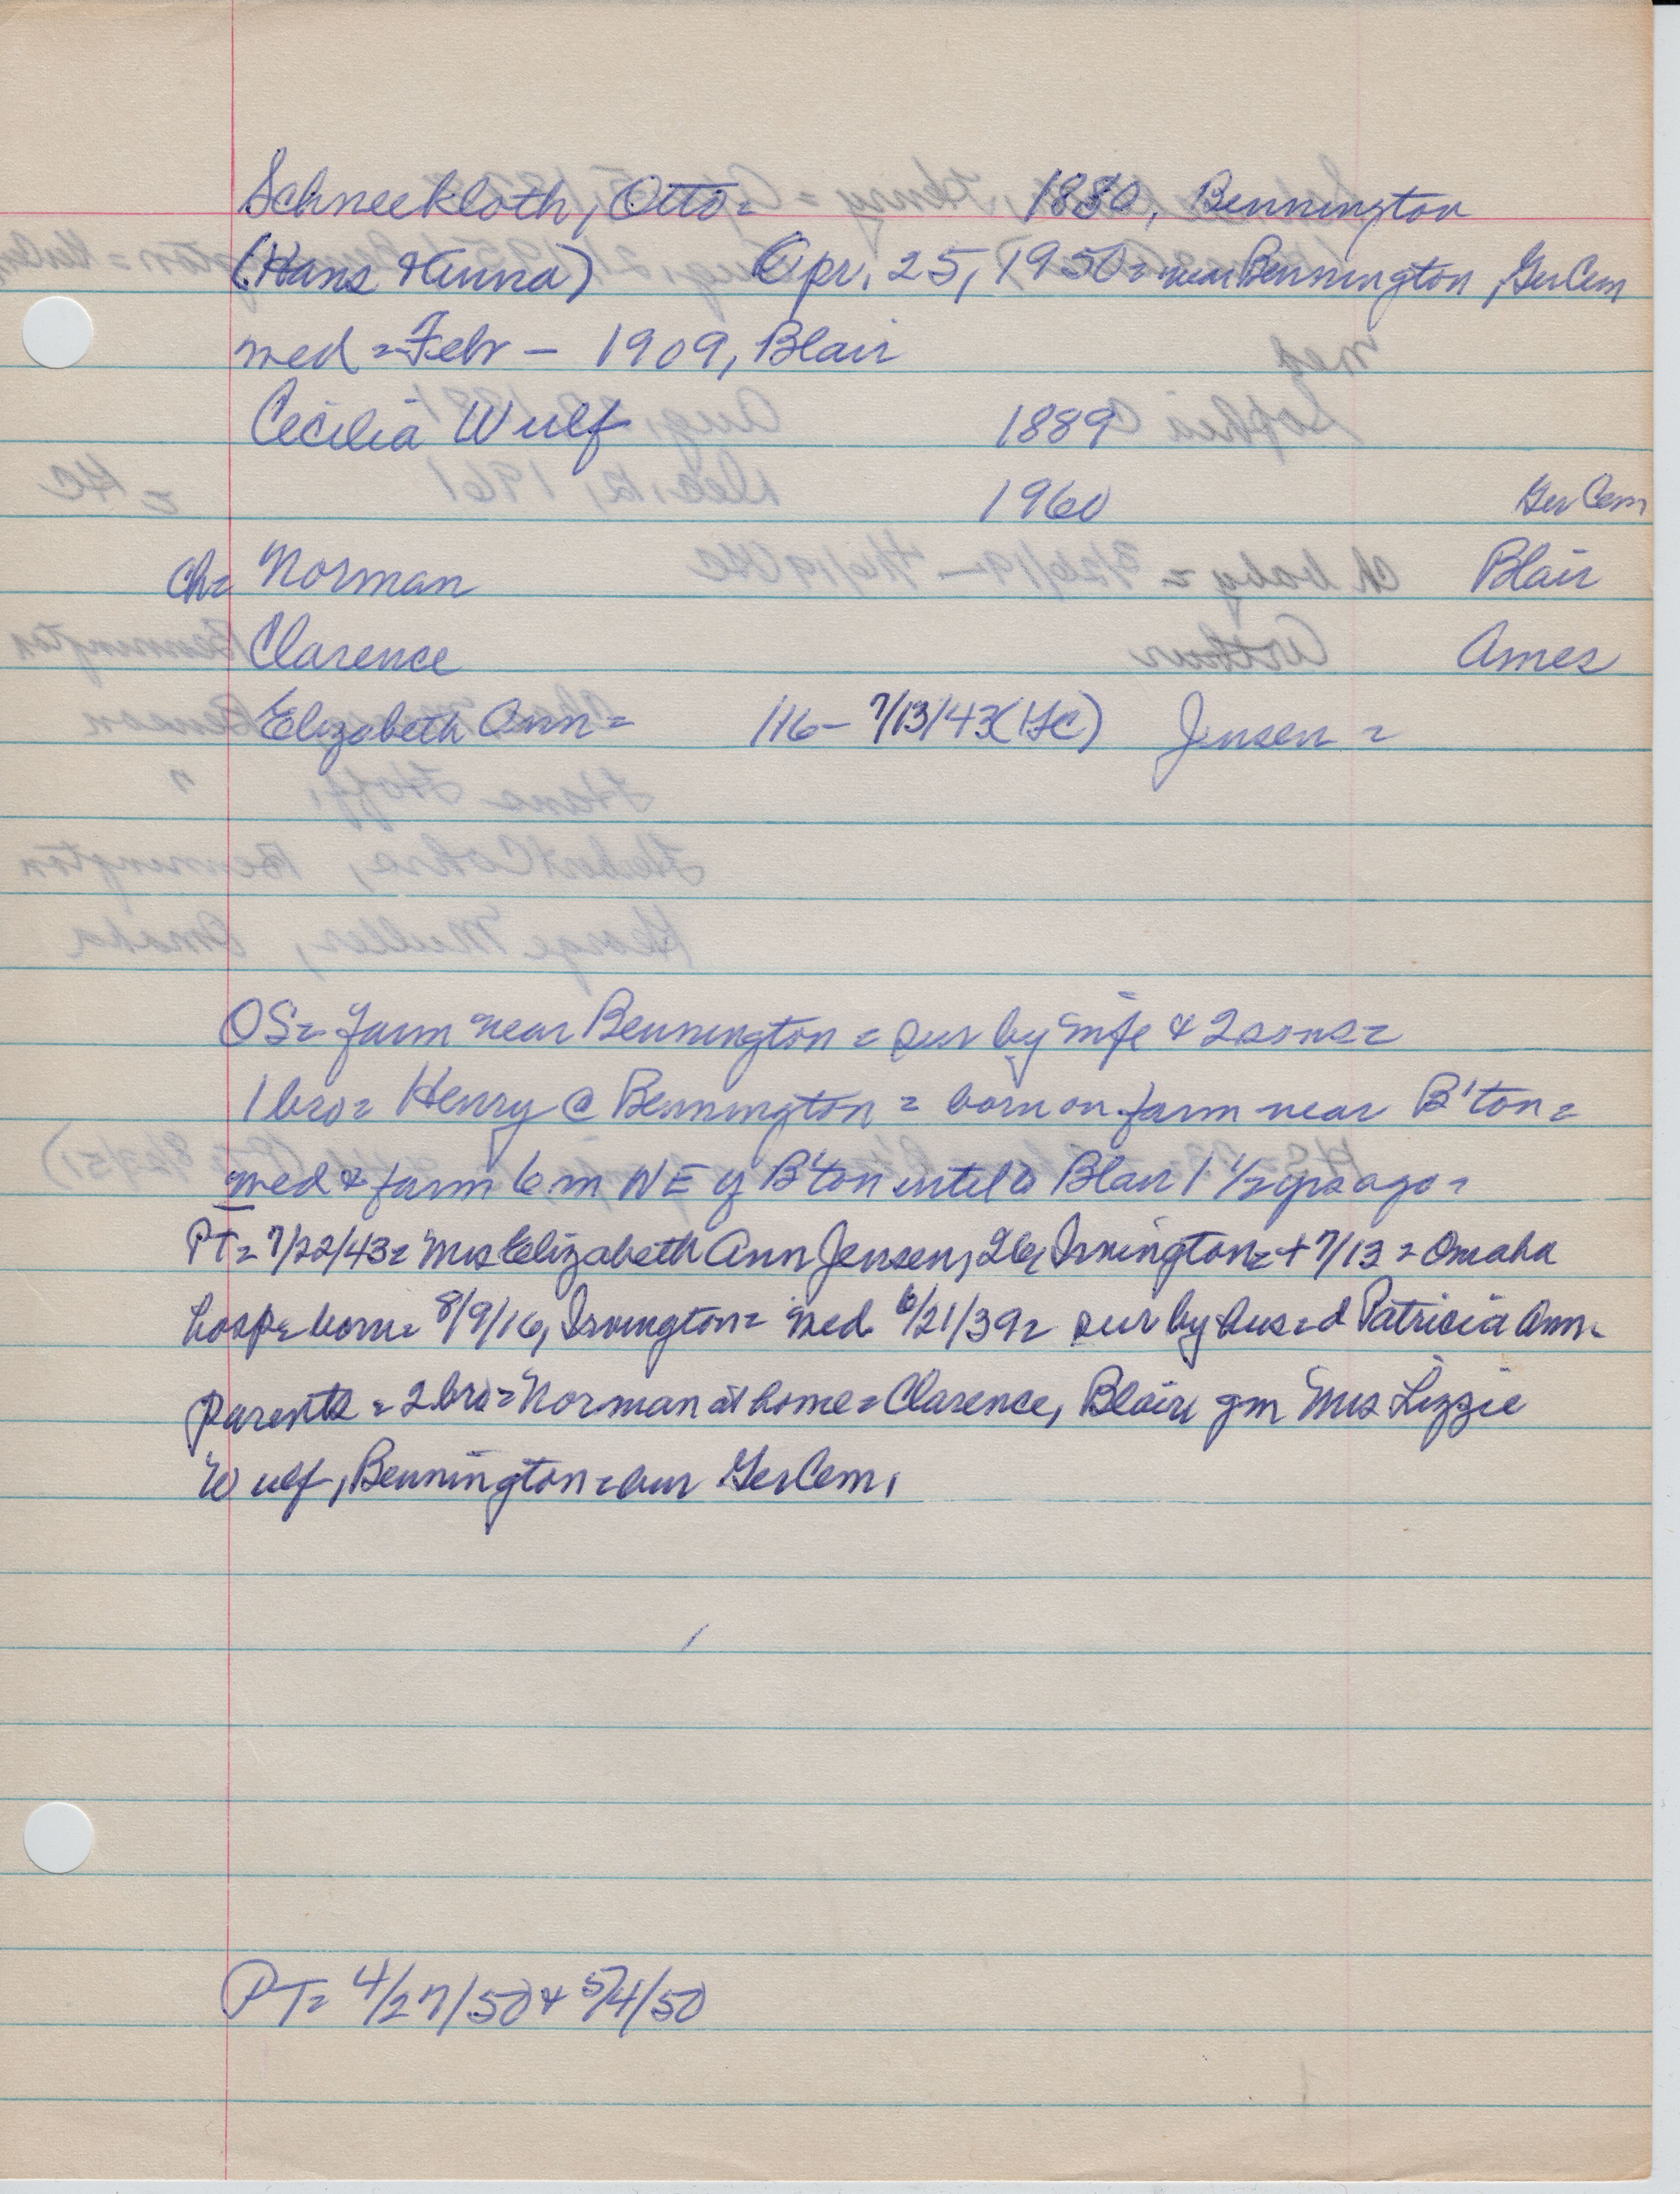 Schneekloth, Otto = 1880, Bennington
(Hans & Anna) Apr. 25, 1950 = near Bennington, Ger Cem
med = Febr – 1909, Blair
Cecilia Wulf 1889
1960 Ger Cem
Ch = Norman Blair
Clarence Ames
Elizabeth Ann = 7/13/43 (GC) Jensen =
OS = farm near Bennington = sur by wife & 2 sons =
1 bro = Henry @ Bennington = born on farm near B'ton =
med & farm 6 m NE of B'ton until to Blair 1 1/2 yrs ago =
PT = 7/22/43 = Mrs Elizabeth Ann Jensen, 26, Irvington = + 7/13 = Omaha
hosp = born = 8/9/16, Irvington = med 6/21/39 = sur by hus = d Patricia Ann =
parents = 2 bro = Norman at home = Clarence, Blair gm Mrs Lizzie
Wulf, Bennington = bur Ger Cem.
PT = 4/27/50 & 5/4/50